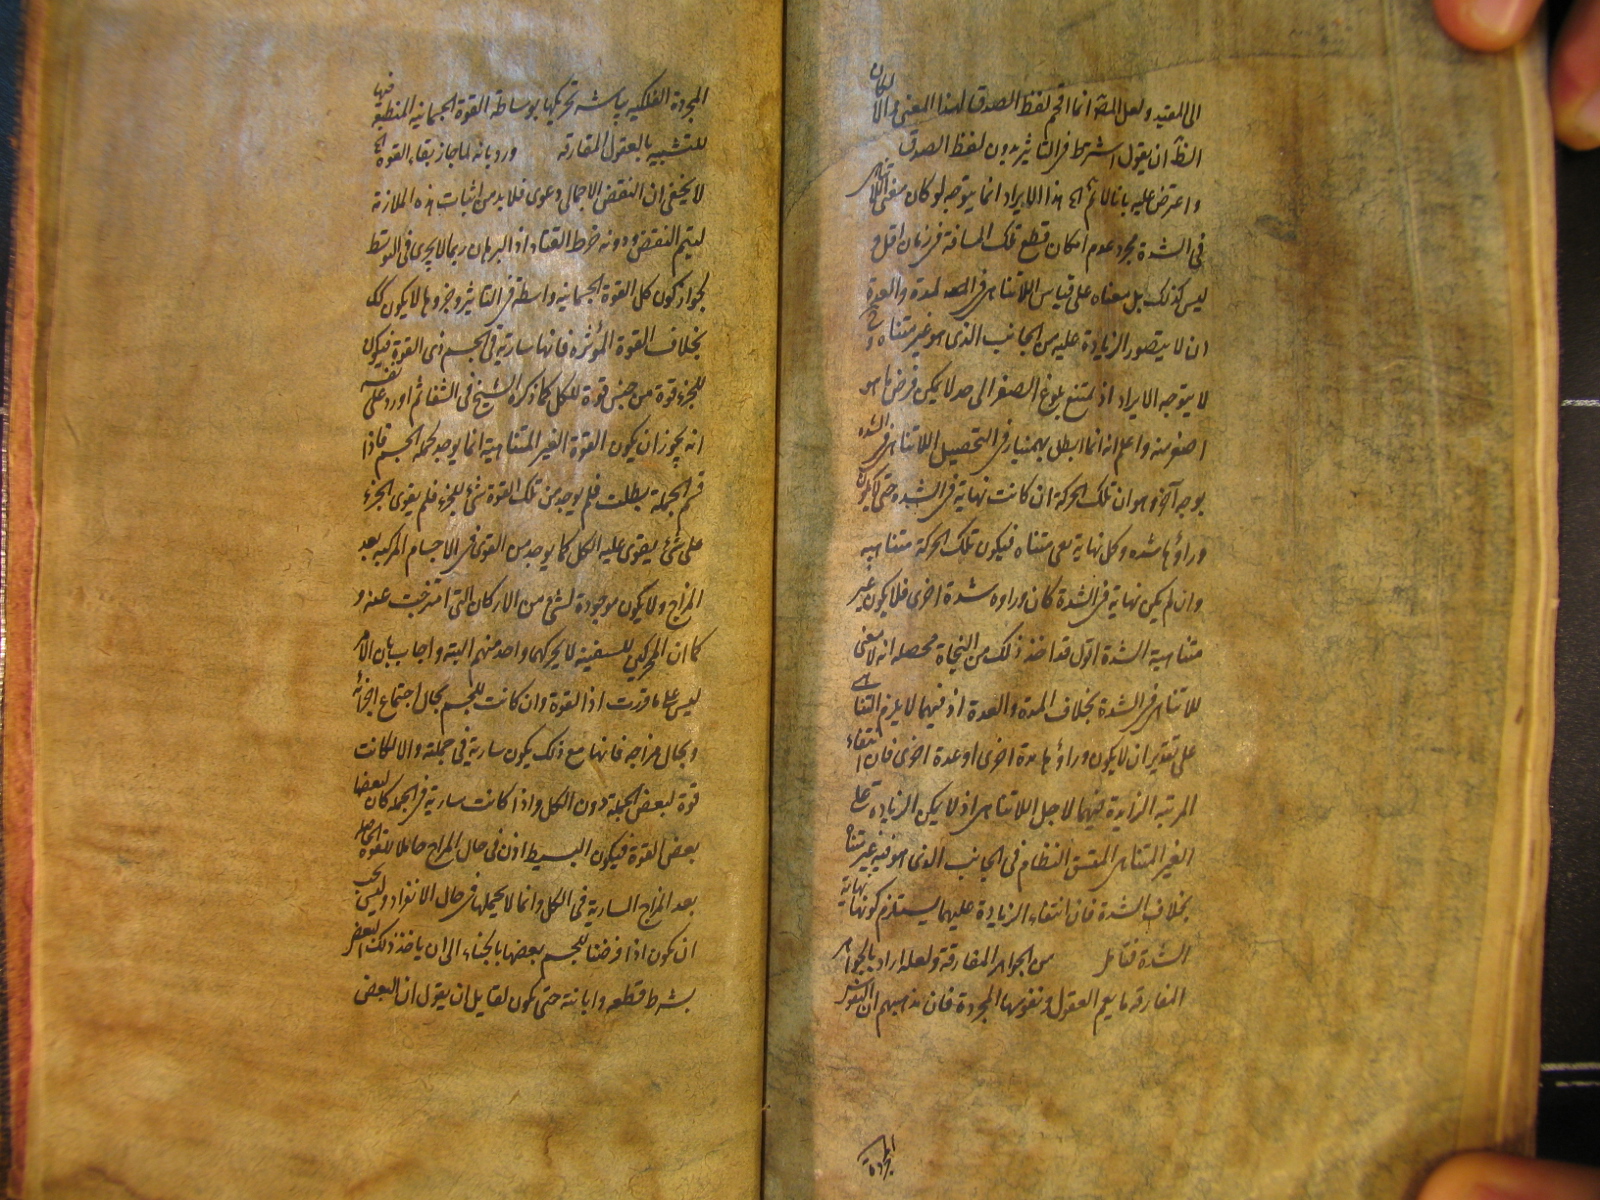 الى المقيد ولعل المصـ انما اقحم لفظ الصدق لهذا المعنى والا لكان
الظـ ان يقول اشرط فى التاثير بدون لفظ الصدق
واعترض عليه بانا لا نم ان هذا الايراد انما يتوجه لو كان معنى اللاتناهى
فى الشدة مجرد عدم امكان قطع تلك المسافة فى زمان اقل و
ليس كذلك بل معناه على قياس اللاتناهى فى المدة والعدة
ان لا يتصور الزيادة عليه من الجانب الذى هو غير متناه وح
لا يتوجه الايراد اذ يمتنع بلوغ الصغر الى حد لا يمكن فرض ما هو
اصغر منه واعلم انه انما ابطل بهمنيار فى التحصيل اللاتناهى فى الشدة
بوجه آخر وهو ان تلك الحركة ان كانت نهاية فى الشدة حتى لا يكون
وراؤها شدة وكل نهاية فهى متناه فيكون تلك الحركة متناهية
وان لم يكن نهاية فى الشدة كان وراءه شدة اخرى فلا يكون غير
متناهية الشدة اقول قد اخذ ذلك من النجاة محصله انه لا معنى
للاتناهى فى الشدة بخلاف المدة والعدة اذ فيهما لا يلزم التناهى
على تقدير ان لا يكون وراؤها مدة اخرى او عدة اخرى فان انتفاء
المرتبة الزايدة فيهما لاجل اللاتناهى اذ لا يمكن الزيادة على
الغير المتناهى المتسق النظام فى الجانب الذى هو فيه غير متناه
بخلاف الشدة فان انتفاء الزيادة عليهما يستلزم كونها نهاية
الشدة فتامل من الجواهر المفارقة ولعله اراد بالجواهر
المفارقة ما يعم العقول ونفوسها المجردة فان مذهبهم ان النفوس
المجردة
المجردة الفلكية يباشر تحريكها بوساطة القوة الجسمانية المنطبعة فيها
للتشبيه بالعقول المفارقة ورد بانه لما جاز بقاء القوة الخ
لا يخفى ان النقض الاجمالى دعوى فلا بد من اثبات هذه الملازمة
ليتم النقض ودونه خرط القتاد اذ البرهان ربما لا يجرى فى المتوسط
لجواز كون كل القوة الجسمانية واسطة فى التاثير وجزوها لا يكون كك
بخلاف القوة المؤثرة فانها سارية فى الجسم ذى القوة فيكون
للجزء قوة من جنس قوة الكل كما ذكره الشيخ فى الشفا ثم اورد على نفسه
انه يجوز ان يكون القوة الغير المتناهية انما يوجد لجملة الجسم فاذا
قسم الجملة بطلت فلم يوجد من تلك القوة شئ للجزء فلم يقوى الجزء
على شئ يقوى عليه الكل كما يوجد من القوى فى الاجسام المركبة بعد
المزاج ولا يكون موجودة لشئ من الاركان التى امتزجت عنه و
كما ان المحركين للسفينة لا يحركها واحد منهم البتة واجاب بان الامر
ليس على ما قدرت اذ القوة وان كانت للجسم بحال اجتماع اجزائه
وبحال مزاجه فانها مع ذلك يكون سارية فى جملة والا لكانت
قوة لبعض الجملة دون الكل واذا كانت سارية فى الجملة كان لبعضها
بعض القوة فيكون البسيط اذن فى حال المزاج حاملا للقوة الحاصلة
بعد المزاج السارية فى الكل وانما لا يحملها فى حال الانفراد وليس يجب
ان يكون اذا فرضنا للجسم بعضها الى ان ياخذ ذلك البعض
بشرط قطعه وابانته حتى يكون لقايل ان يقول ان البعض